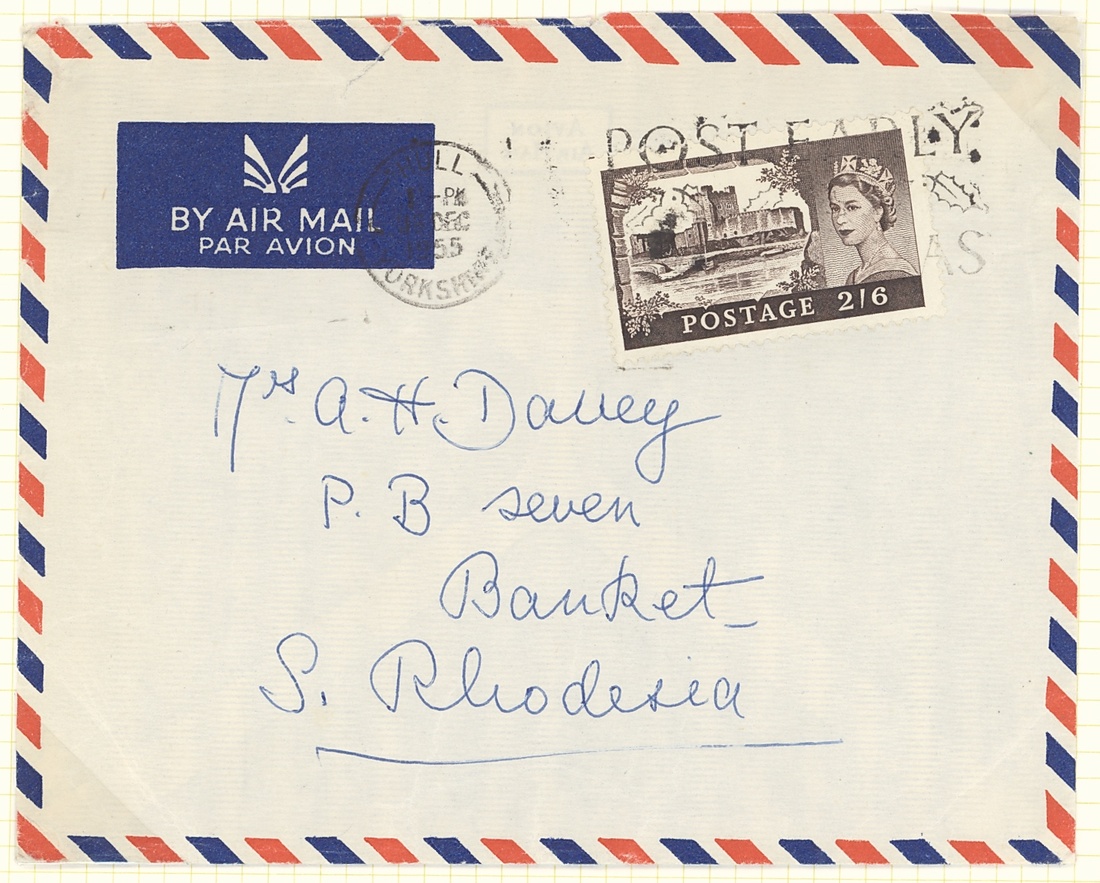 POST EARLY
AS
BY AIR MAIL
PAR AVION
HULL
PM
DEC
55
YORKSHIRE
POSTAGE 2/6
Mrs. A. H. Davey
P. B seven
Banket
S. Rhodesia